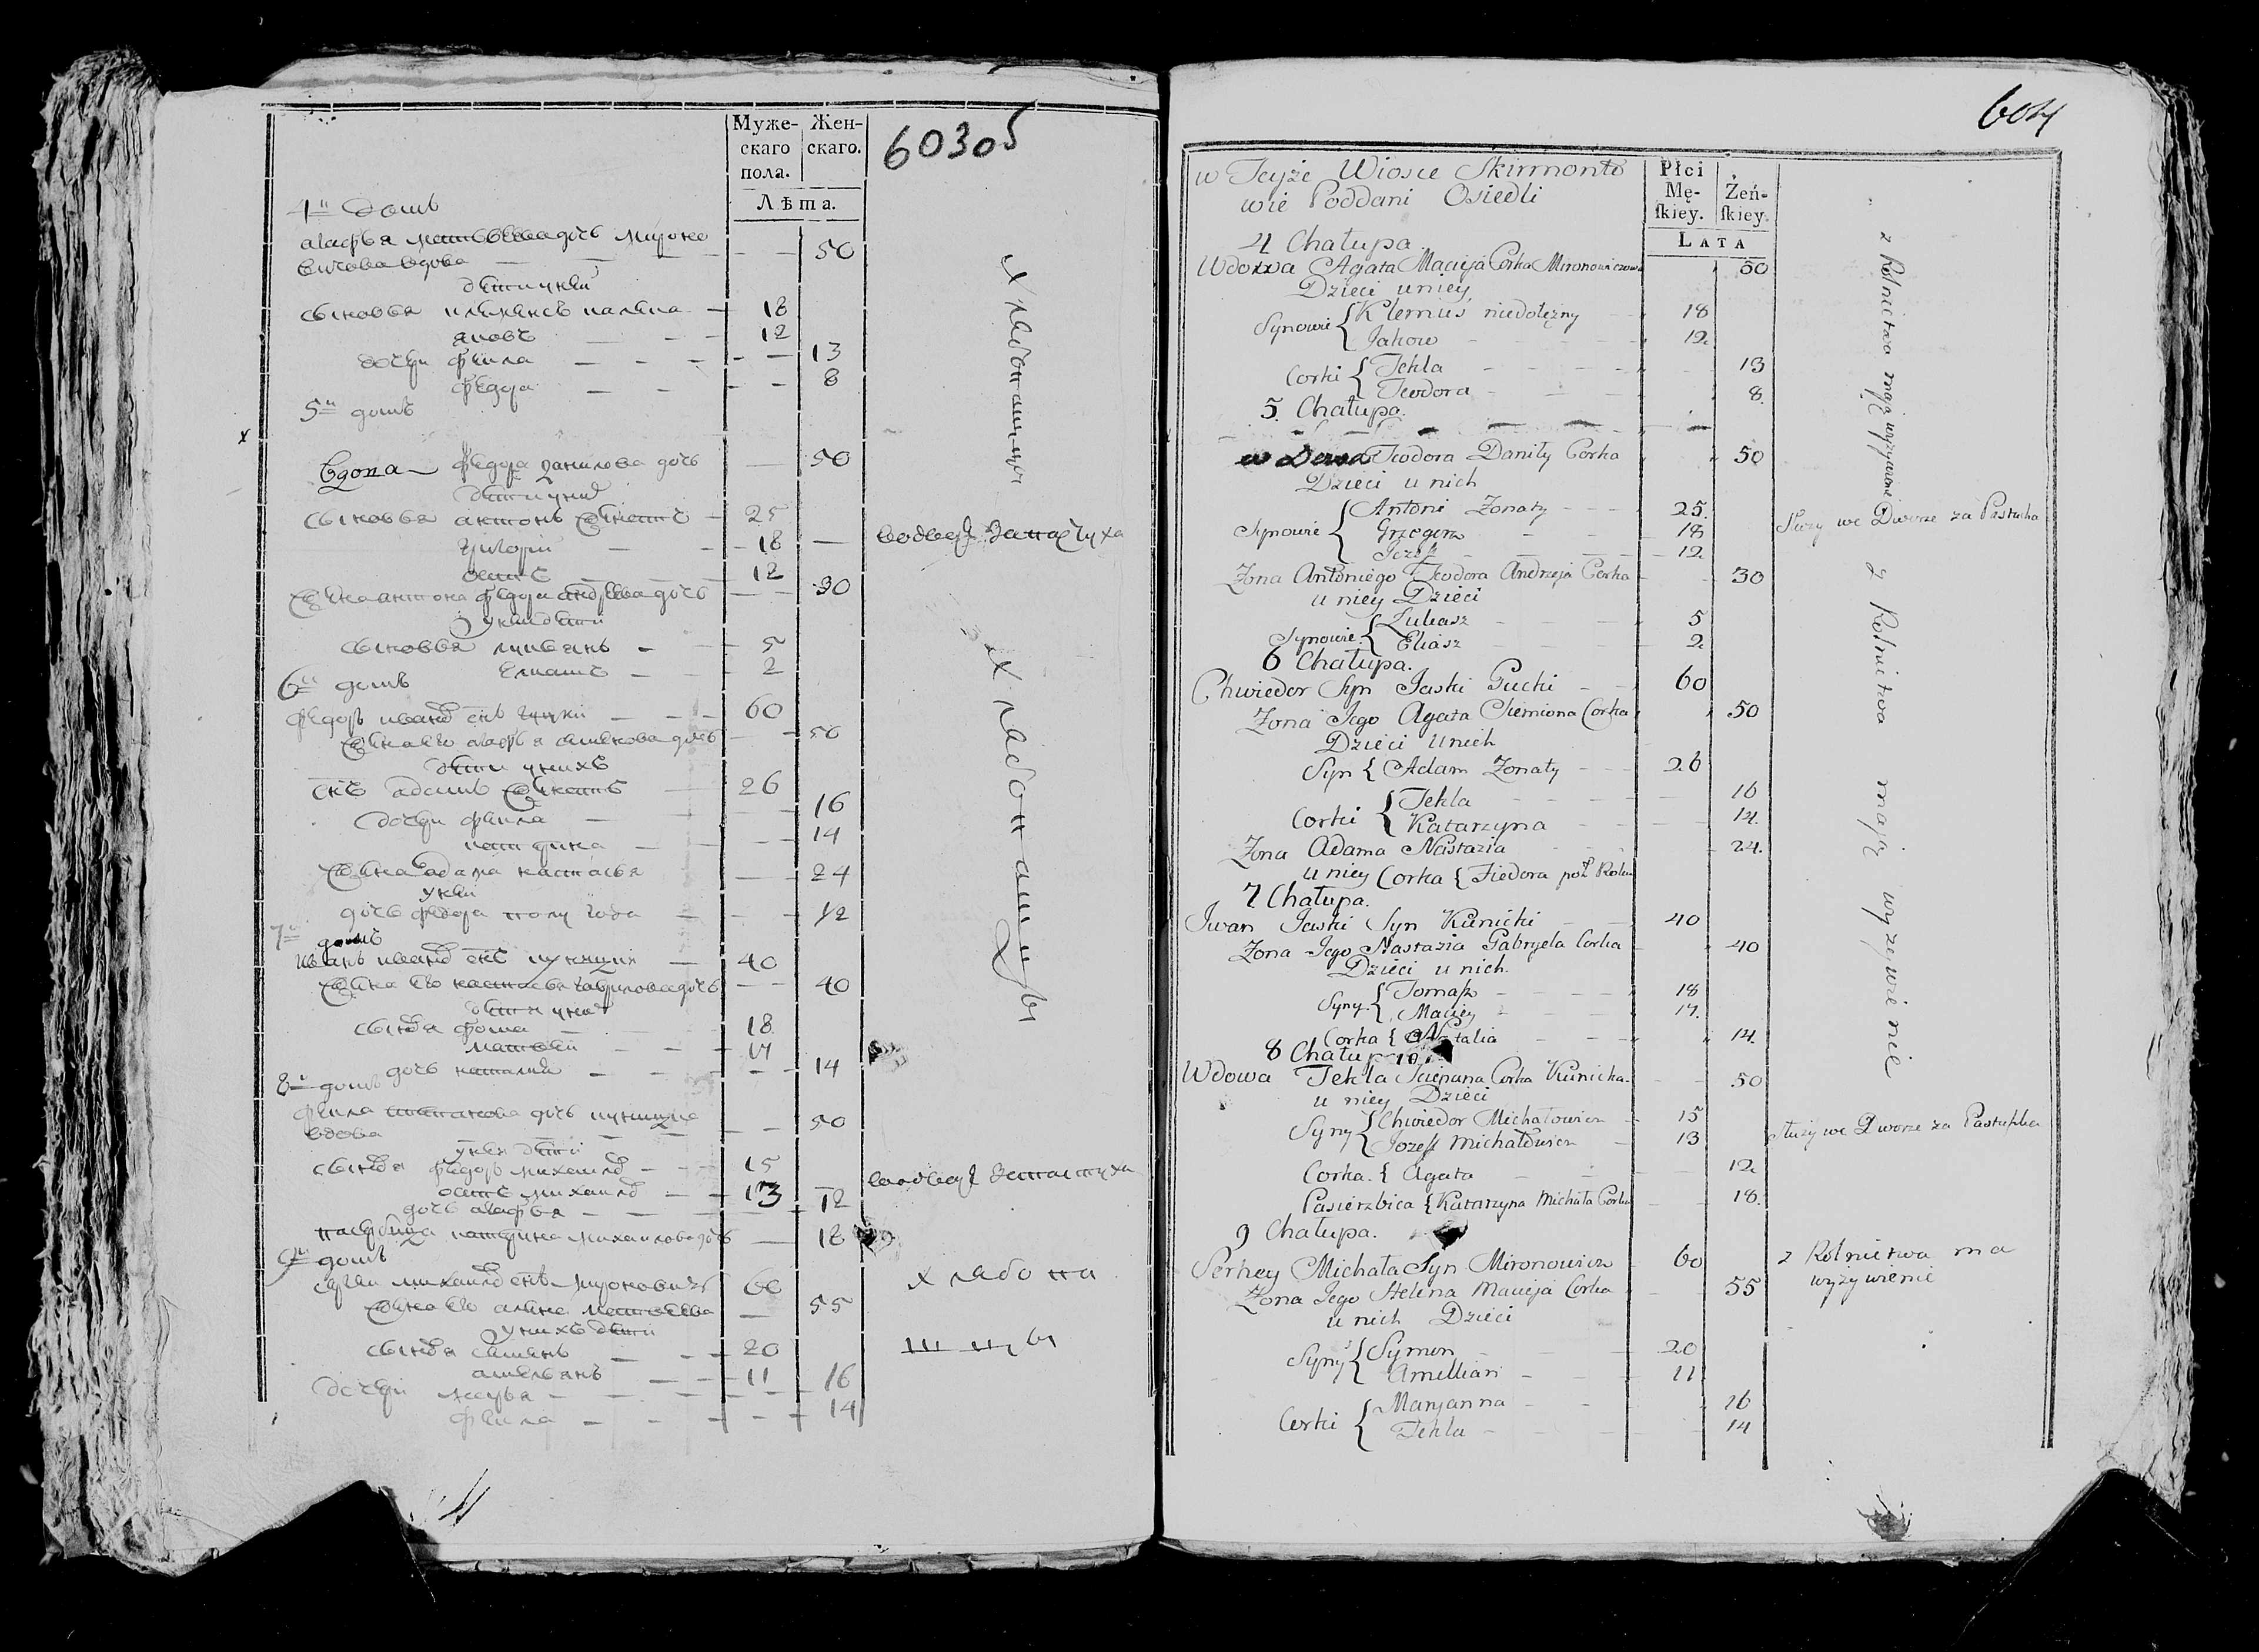 Муже-
скаго
пола.
Жен-
скаго.
Лѣта.
6030б
4й домъ
агафья матвѣева дочь мироно
вичова вдова — — — 50
дѣти у ней
сыновья клеменсъ калека — 18
яковъ — — 12
дочери фекла — — 13
федора — — 8
5й домъ
вдова федора данилова дочь — 50
дѣти у ней
сыновья антонъ женатъ — 25
григорій — — 18 —
осипъ — — 12
жена антона федора андреева дочь — 30
у ней дѣти
сыновья лукьянъ — 5
ельяшъ — 2
6й домъ
федоръ иванов снъ гуцкій — 60
жена его агафья семенова дочь — 50
дѣти у нихъ
снъ адамъ женатъ — 26
дочери фекла — 16
катерина — 14
жена адама настасья — 24
у ней
дочь федора полугода — 1/2
7й домъ
иванъ иванов снъ куницкій — 40
жена его настасья гаврилова дочь — 40
дѣти у них
сыновья фома — 18
матвей — 17
дочь наталия — 14
8й домъ
фекла степанова дочь куницка
вдова — — 50
у ней дѣти
сыновья федоръ михайлов — 15
осипъ михайлов — 13
дочь агафья — 12
пасербица катерина михайлова дочь — 18
9й домъ
сергей михайлов снъ миронович — 60
жена его алена матвеева — 55
у нихъ дѣти
сыновья семенъ — 20
амельянъ — 11
дочери марья — 16
фекла — 14
хлебопашцы
во дворе за пастуха
хлебопашцы
во дворе за пастуха
хлебопа
шцы
604
w Teyże Wiosce Skirmonto
wie Poddani Osiedli
Płci
Mę-
skiey.
Żeń-
skiey.
LATA
4 Chałupa
Wdowa Agata Macieja Corka Mironowiczowa 50
Dzieci u niey
Synowie { Klemus niedołężny 18
Jakow 12
Corki { Tekla 13
Teodora 8
5 Chałupa.
wdowa Teodora Daniły Corka 50
Dzieci u nich
Synowie { Antoni Żonaty 25.
Grzegorz 18
Jozeff 12
Żona Antoniego Teodora Andrzeja Corka 30
u niey Dzieci
Synowie { Łukasz 5
Eliasz 2
6 Chałupa.
Chwiedor Syn Jaski Gucki 60
Żona Jego Agata Siemiona Corka 50
Dzieci u nich
Syn { Adam Żonaty 26
Corki { Tekla 16
Katarzyna 14.
Żona Adama Nastazia 24.
u niey Corka { Fiedora poł Roku
7 Chałupa.
Jwan Jaski Syn Kunicki 40
Żona Jego Nastazia Gabryela Corka 40
Dzieci u nich.
Syny { Tomasz 18
Maciey 17.
Corka { Natalia 14.
8 Chałupa
Wdowa Tekla Sciepana Corka Kunicka 50
u niey Dzieci
Syny { Chwiedor Michałowicz 15
Jozeff Michałowicz 13
Corka. { Agata 12
Pasierzbica { Katarzyna Michała Corka 18.
9 Chałupa.
Serhey Michała Syn Mironowicz 60
Żona Jego Helena Macieja Corka 55
u nich Dzieci
Syny { Symon 20
Amellian 11
Corki { Maryanna 16
Tekla 14
z Rolnictwa mają wyżywienie
Służy we Dworze za Pastucha
z Rolnictwa mają wyżywienie
służy we Dworze za Pastuszka
z Rolnictwa ma
wyżywienie